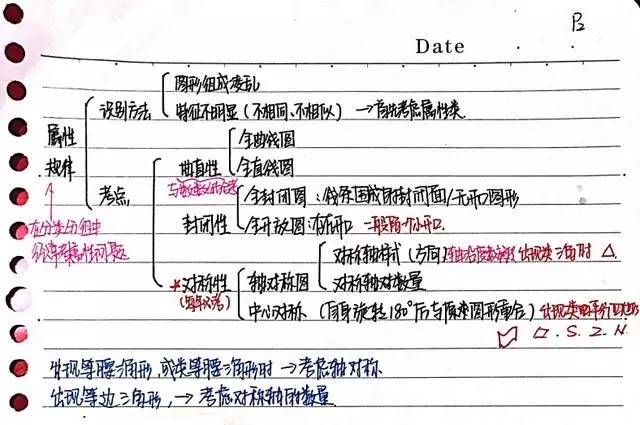 P2
Date
图形组成凌乱
识别方法
特征不明显（不相同、不相似）→首先考虑属性类
属性
规律
全曲线图
曲直性
全直线图
考点
全封闭图：线条围成的封闭面/无开口图形
封闭性
全开放图：有开口 一般留一个小开口
在分类分组中
对称轴样式（方向） 出现类三角时 △
★对称性
轴对称图
对称轴对数量
中心对称（自身旋转180°后与原来图形重合）
▱.S.Z.N.
出现等腰三角形,或类等腰三角形时→考虑轴对称
出现等边三角形,→考虑对称轴的数量